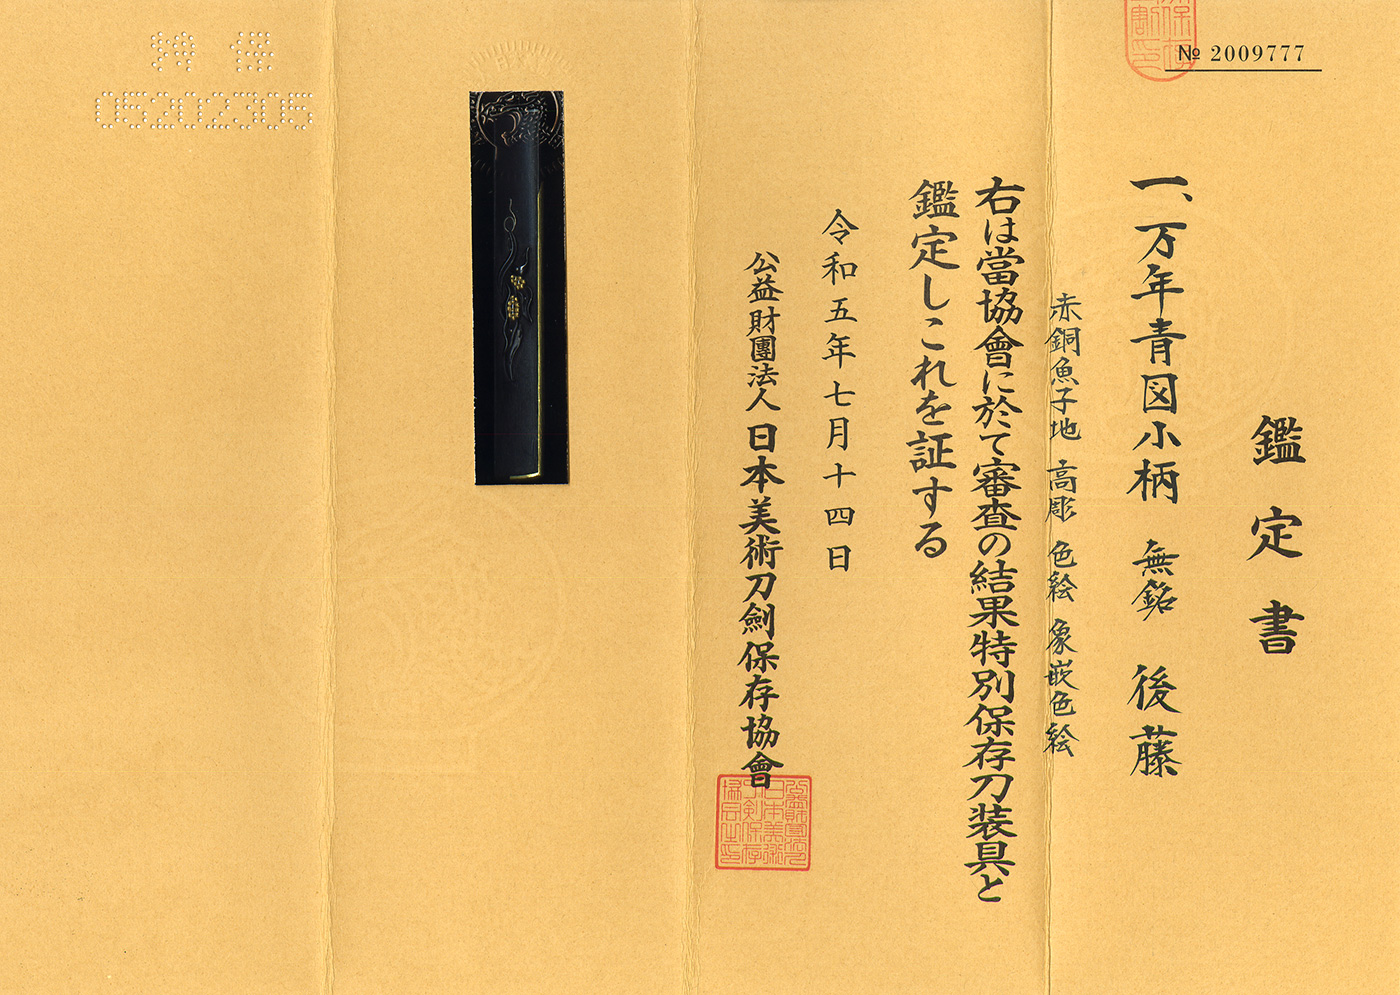 № 2009777
鑑定書
一、万年青図小柄 無銘 後藤
赤銅魚子地 高彫 色絵 象嵌色絵
右は當協會に於て審査の結果特別保存刀装具と
鑑定しこれを証する
令和五年七月十四日
公益財團法人日本美術刀劍保存協會
05202305